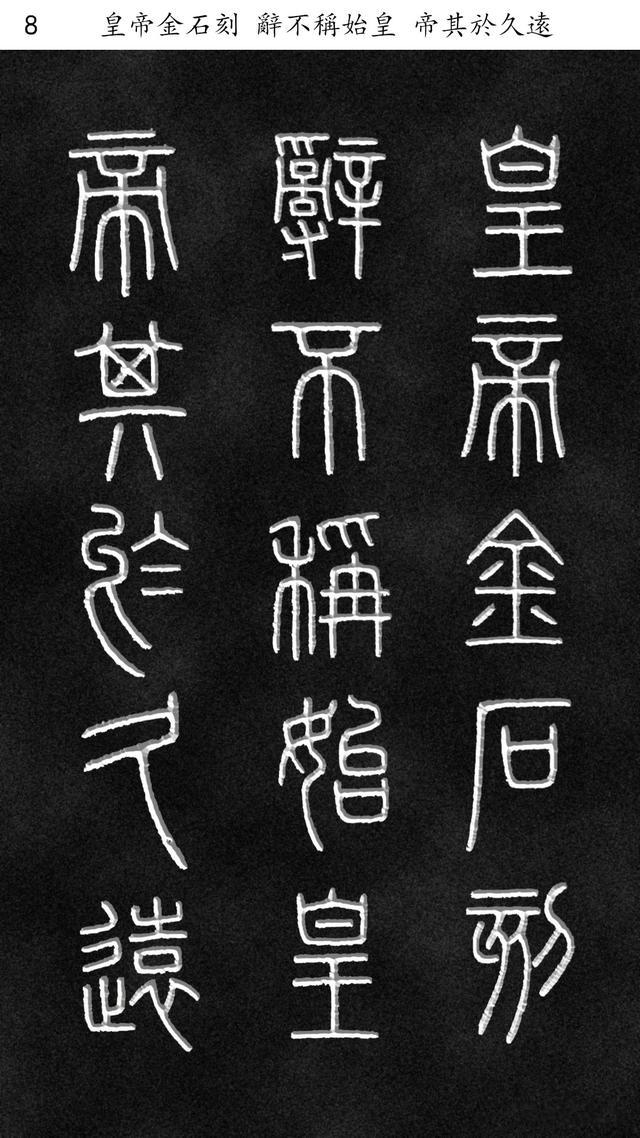 8 皇帝金石刻 辭不稱始皇 帝其於久遠
皇帝金石刻
辭不稱始皇
帝其於久遠